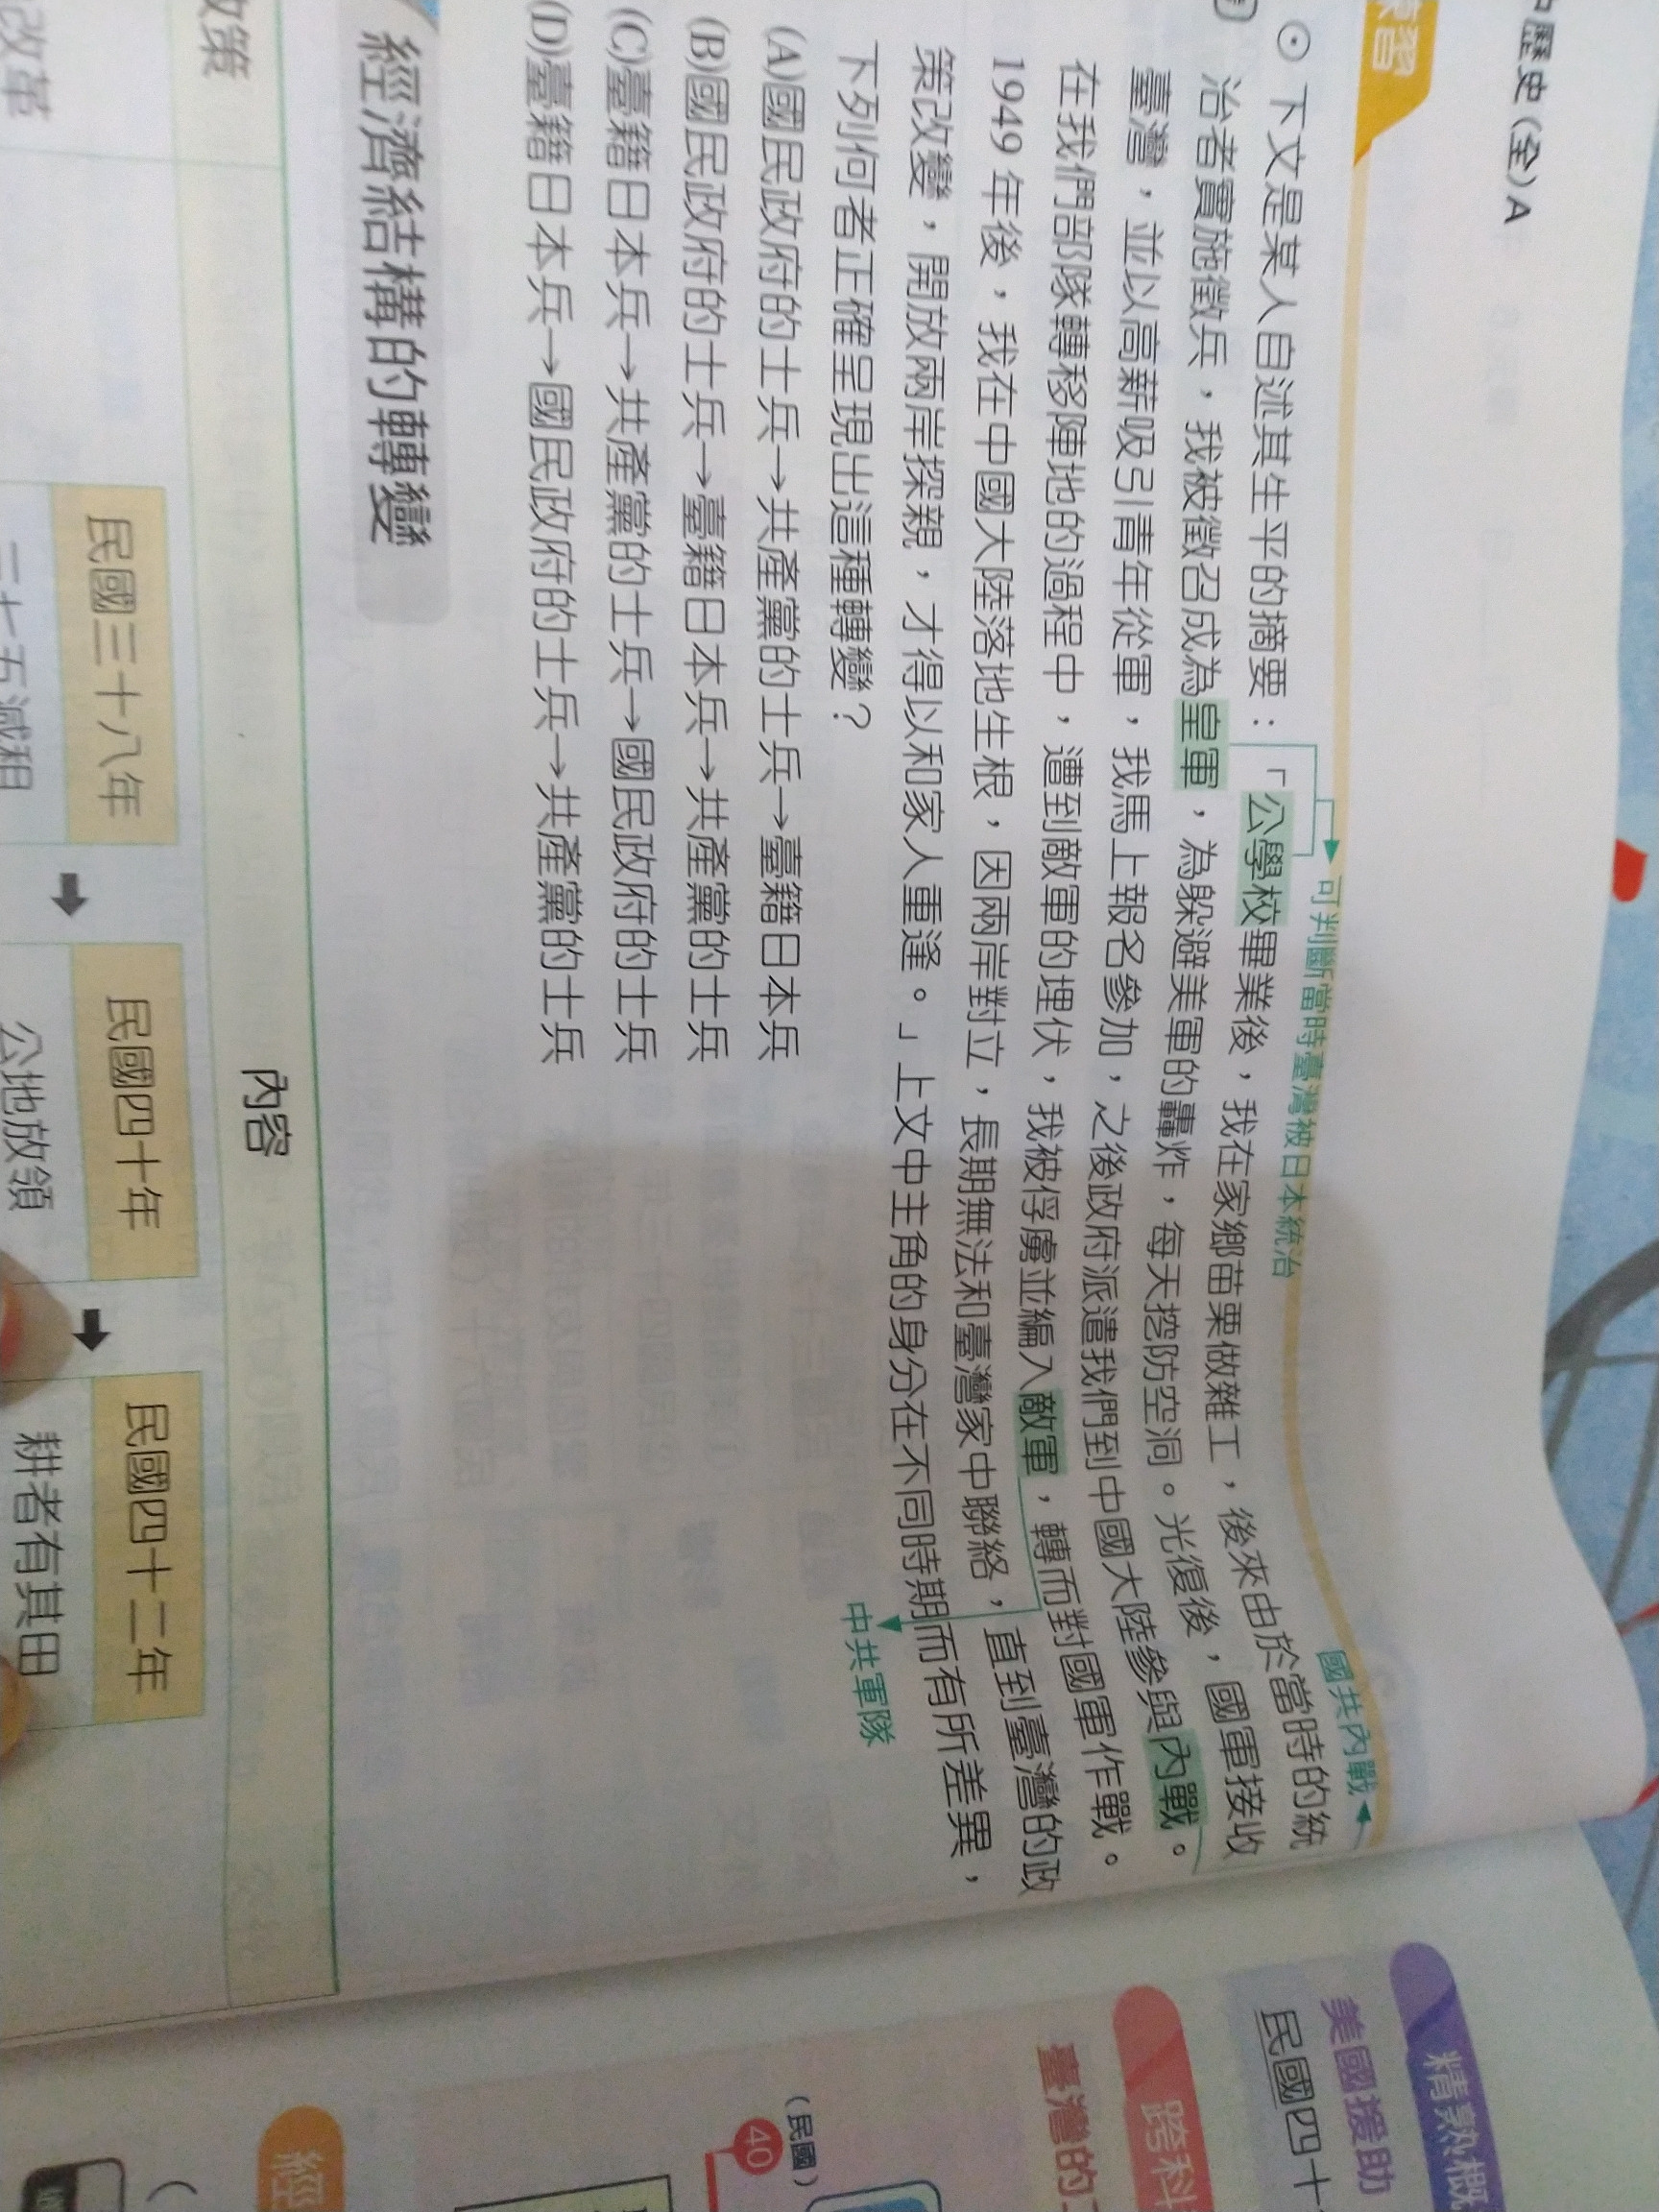 中歷史(全)A
練習
⊙下文是某人自述其生平的摘要：「公學校畢業後，我在家鄉苗栗做雜工，後來由於當時的統
治者實施徵兵，我被徵召成為皇軍，為躲避美軍的轟炸，每天挖防空洞。光復後，國軍接收
臺灣，並以高薪吸引青年從軍，我馬上報名參加，之後政府派遣我們到中國大陸參與內戰。
在我們部隊轉移陣地的過程中，遭到敵軍的埋伏，我被俘虜並編入敵軍，轉而對國軍作戰。
1949 年後，我在中國大陸落地生根，因兩岸對立，長期無法和臺灣家中聯絡，直到臺灣的政
策改變，開放兩岸探親，才得以和家人重逢。」上文中主角的身分在不同時期而有所差異，
下列何者正確呈現出這種轉變？
可判斷當時臺灣被日本統治
國共內戰
中共軍隊
(A)國民政府的士兵→共產黨的士兵→臺籍日本兵
(B)國民政府的士兵→臺籍日本兵→共產黨的士兵
(C)臺籍日本兵→共產黨的士兵→國民政府的士兵
(D)臺籍日本兵→國民政府的士兵→共產黨的士兵
經濟結構的轉變
政策
內容
改革
民國三十八年
民國四十年
民國四十二年
三七五減租
公地放領
耕者有其田
美國援助
民國四十
跨科
臺灣的
(民國)
40
經